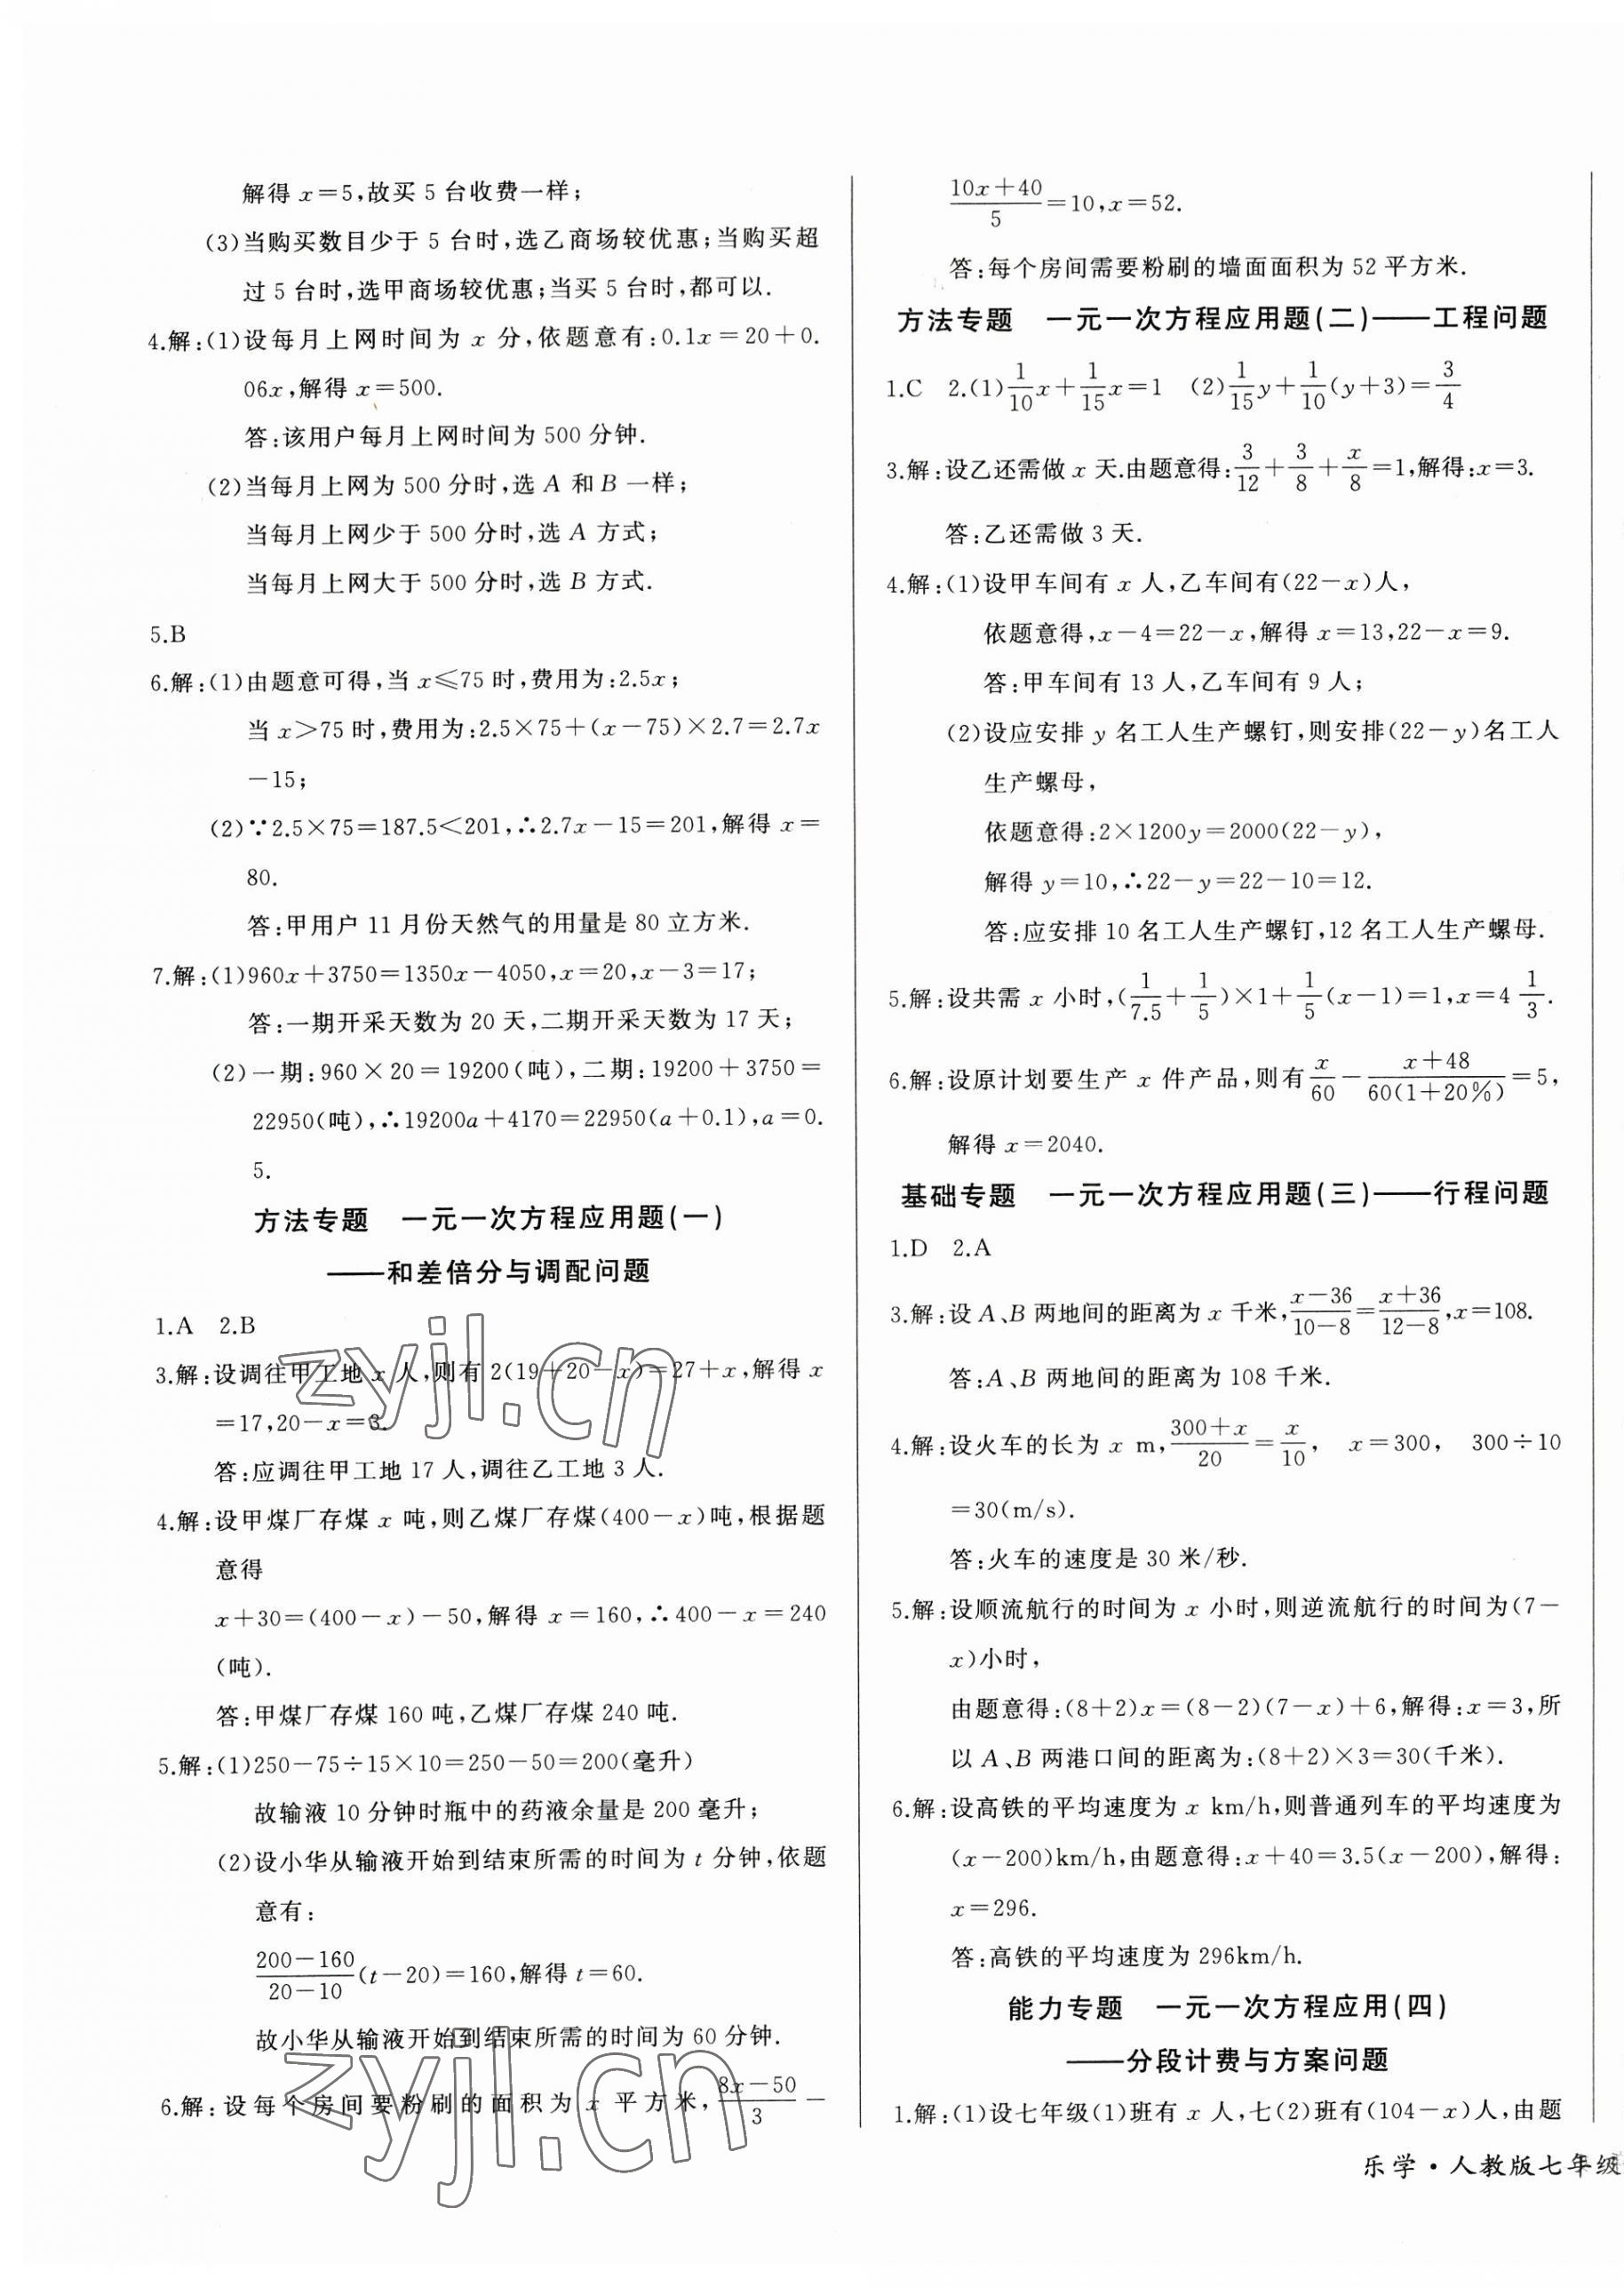 解得 x=5,故买 5 台收费一样;
(3)当购买数目少于 5 台时,选乙商场较优惠;当购买超
过 5 台时,选甲商场较优惠;当买 5 台时,都可以.
4.解:(1)设每月上网时间为 x 分,依题意有:0.1x=20+0.
06x,解得 x=500.
答:该用户每月上网时间为 500 分钟.
(2)当每月上网为 500 分时,选 A 和 B 一样;
当每月上网少于 500 分时,选 A 方式;
当每月上网大于 500 分时,选 B 方式.
5.B
6.解:(1)由题意可得,当 x≤75 时,费用为:2.5x;
当 x>75 时,费用为:2.5×75+(x-75)×2.7=2.7x
-15;
(2)∵2.5×75=187.5<201,∴2.7x-15=201,解得 x=
80.
答:甲用户 11 月份天然气的用量是 80 立方米.
7.解:(1)960x+3750=1350x-4050,x=20,x-3=17;
答:一期开采天数为 20 天,二期开采天数为 17 天;
(2)一期:960×20=19200(吨),二期:19200+3750=
22950(吨),∴19200a+4170=22950(a+0.1),a=0.
5.
方法专题 一元一次方程应用题(一)
——和差倍分与调配问题
1.A 2.B
3.解:设调往甲工地 x 人,则有 2(19+20-x)=27+x,解得 x
=17,20-x=3.
答:应调往甲工地 17 人,调往乙工地 3 人.
4.解:设甲煤厂存煤 x 吨,则乙煤厂存煤(400-x)吨,根据题
意得
x+30=(400-x)-50,解得 x=160,∴400-x=240
(吨).
答:甲煤厂存煤 160 吨,乙煤厂存煤 240 吨.
5.解:(1)250-75÷15×10=250-50=200(毫升)
故输液 10 分钟时瓶中的药液余量是 200 毫升;
(2)设小华从输液开始到结束所需的时间为 t 分钟,依题
意有:
\frac{200-160}{20-10}(t-20)=160,解得 t=60.
故小华从输液开始到结束所需的时间为 60 分钟.
6.解:设每个房间要粉刷的面积为 x 平方米,\frac{8x-50}{3}-
\frac{10x+40}{5}=10,x=52.
答:每个房间需要粉刷的墙面面积为 52 平方米.
方法专题 一元一次方程应用题(二)——工程问题
1.C 2.(1)\frac{1}{10}x+\frac{1}{15}x=1 (2)\frac{1}{15}y+\frac{1}{10}(y+3)=\frac{3}{4}
3.解:设乙还需做 x 天.由题意得:\frac{3}{12}+\frac{3}{8}+\frac{x}{8}=1,解得:x=3.
答:乙还需做 3 天.
4.解:(1)设甲车间有 x 人,乙车间有(22-x)人,
依题意得,x-4=22-x,解得 x=13,22-x=9.
答:甲车间有 13 人,乙车间有 9 人;
(2)设应安排 y 名工人生产螺钉,则安排(22-y)名工人
生产螺母,
依题意得:2×1200y=2000(22-y),
解得 y=10,∴22-y=22-10=12.
答:应安排 10 名工人生产螺钉,12 名工人生产螺母.
5.解:设共需 x 小时,(\frac{1}{7.5}+\frac{1}{5})×1+\frac{1}{5}(x-1)=1,x=4\frac{1}{3}.
6.解:设原计划要生产 x 件产品,则有\frac{x}{60}-\frac{x+48}{60(1+20%)}=5,
解得 x=2040.
基础专题 一元一次方程应用题(三)——行程问题
1.D 2.A
3.解:设 A、B 两地间的距离为 x 千米,\frac{x-36}{10-8}=\frac{x+36}{12-8},x=108.
答:A、B 两地间的距离为 108 千米.
4.解:设火车的长为 x m,\frac{300+x}{20}=\frac{x}{10}, x=300, 300÷10
=30(m/s).
答:火车的速度是 30 米/秒.
5.解:设顺流航行的时间为 x 小时,则逆流航行的时间为(7-
x)小时,
由题意得:(8+2)x=(8-2)(7-x)+6,解得:x=3,所
以 A、B 两港口间的距离为:(8+2)×3=30(千米).
6.解:设高铁的平均速度为 x km/h,则普通列车的平均速度为
(x-200)km/h,由题意得:x+40=3.5(x-200),解得:
x=296.
答:高铁的平均速度为 296km/h.
能力专题 一元一次方程应用(四)
——分段计费与方案问题
1.解:(1)设七年级(1)班有 x 人,七(2)班有(104-x)人,由题
乐学·人教版七年级
zyjl.cn
zyjl.cn